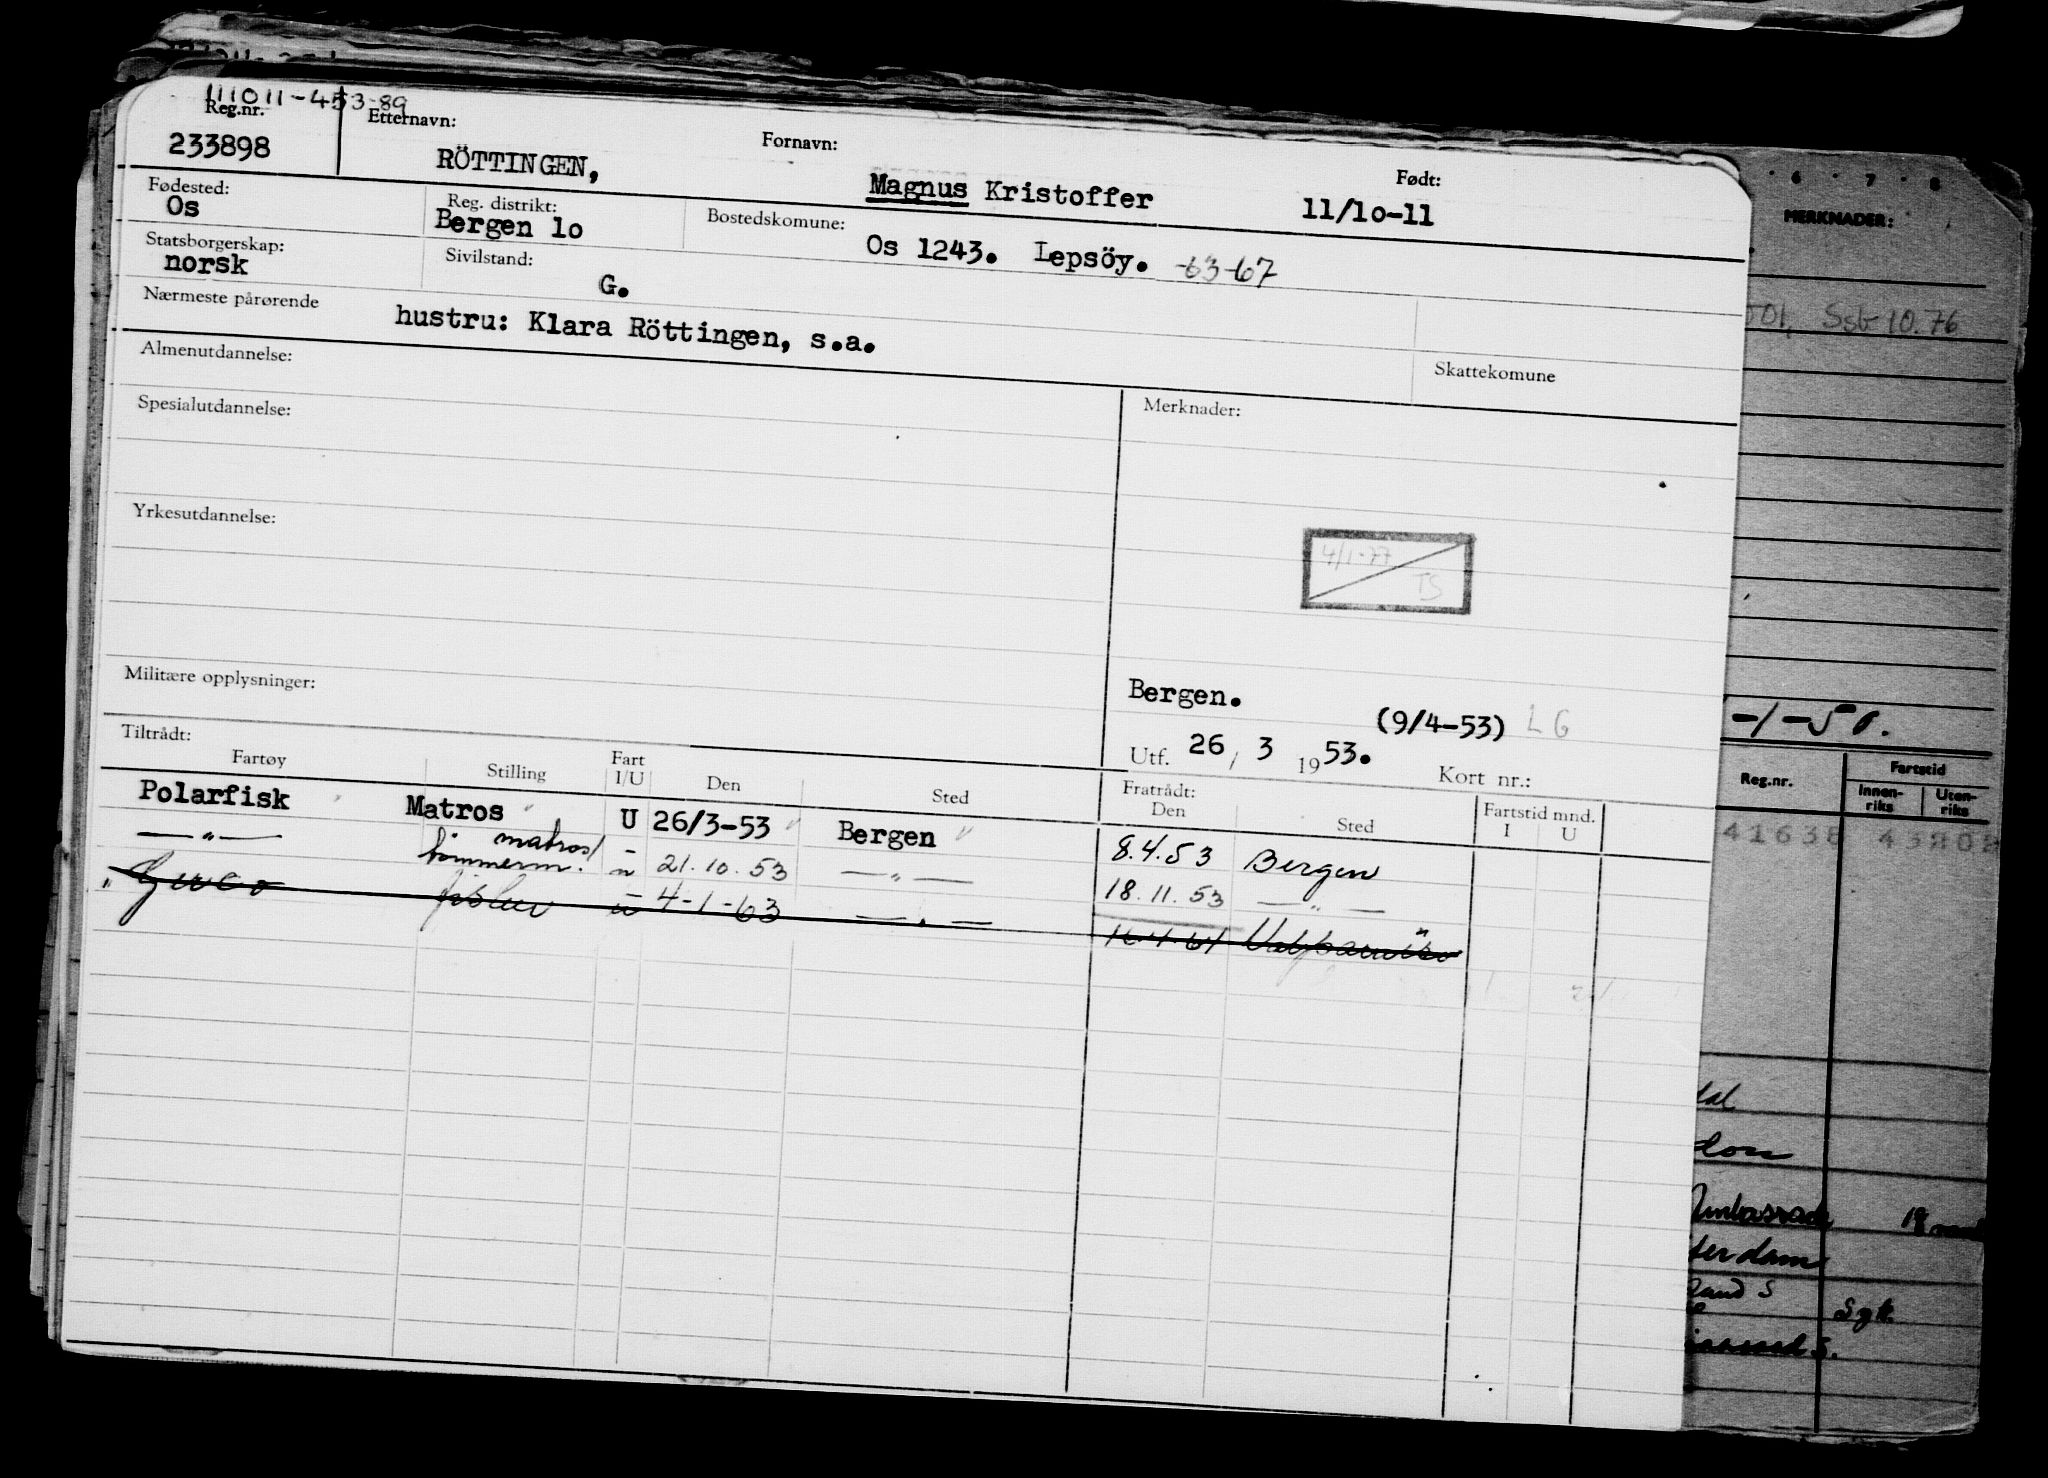 111011-453-89
Reg.nr. Etternavn: Fornavn: Født:
233898 RÖTTINGEN, Magnus Kristoffer 11/10-11
Fødested: Reg. distrikt: Bostedskomune:
Os Bergen 1o Os 1243. Lepsöy. -63-67
Statsborgerskap: Sivilstand:
norsk G.
Nærmeste pårørende
hustru: Klara Röttingen, s.a.
Almenutdannelse: Skattekomune
Spesialutdannelse: Merknader:
Yrkesutdannelse:
4/1-77
TS
Militære opplysninger:
Bergen. (9/4-53) LG
Utf. 26 / 3 1953. Kort nr.:
Tiltrådt: Fratrådt: Fartstid mnd.
Fartøy Stilling Fart I/U Den Sted Den Sted I U
Polarfisk Matros U 26/3-53 Bergen 8.4.53 Bergen
—"— matros/ tømmerm. u 21.10.53 —"— 18.11.53 —"—
fisker u 4-1-63 —"—
6 7 8
MERKNADER:
Ssb 10.76
-1-50.
Reg.nr. Fartstid
Innen-riks Uten-riks
41638 43208
dal
don
terdam